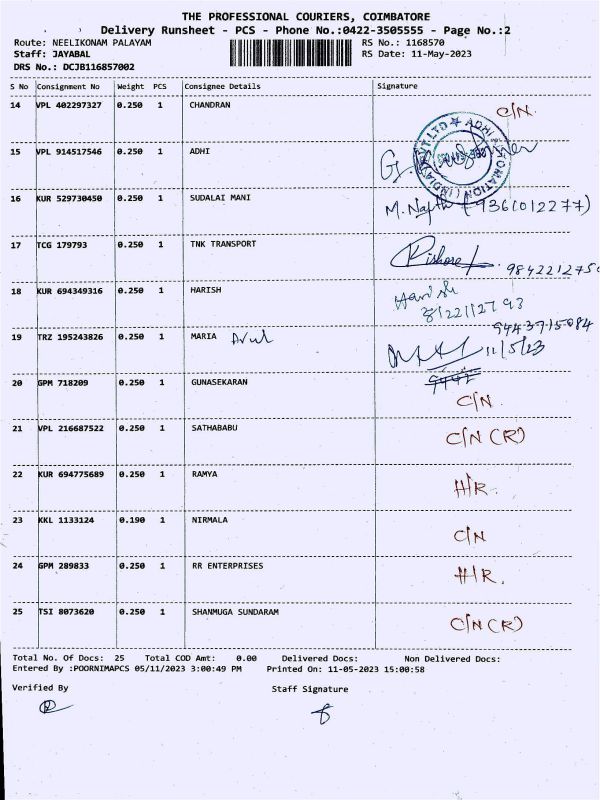 THE PROFESSIONAL COURIERS, COIMBATORE
Delivery Runsheet - PCS - Phone No.:0422-3505555 - Page No.:2
Route: NEELIKONAM PALAYAM RS No.: 1168570
Staff: JAYABAL RS Date: 11-May-2023
DRS No.: DCJB116857002
S No Consignment No Weight PCS Consignee Details Signature
14 VPL 402297327 0.250 1 CHANDRAN C/N.
15 VPL 914517546 0.250 1 ADHI
16 KUR 529730450 0.250 1 SUDALAI MANI (9361012277)
17 TCG 179793 0.250 1 TNK TRANSPORT Kishore
18 KUR 694349316 0.250 1 HARISH Harish
19 TRZ 195243826 0.250 1 MARIA Arul 9443715084
11/5/23
20 GPM 718209 0.250 1 GUNASEKARAN C/N
21 VPL 216687522 0.250 1 SATHABABU C/N (R)
22 KUR 694775689 0.250 1 RAMYA H/R.
23 KKL 1133124 0.190 1 NIRMALA C/N
24 GPM 289833 0.250 1 RR ENTERPRISES H/R.
25 TSI 8073620 0.250 1 SHANMUGA SUNDARAM C/N (R)
Total No. Of Docs: 25 Total COD Amt: 0.00 Delivered Docs: Non Delivered Docs:
Entered By :POORNIMAPCS 05/11/2023 3:00:49 PM Printed On: 11-05-2023 15:00:58
Verified By Staff Signature